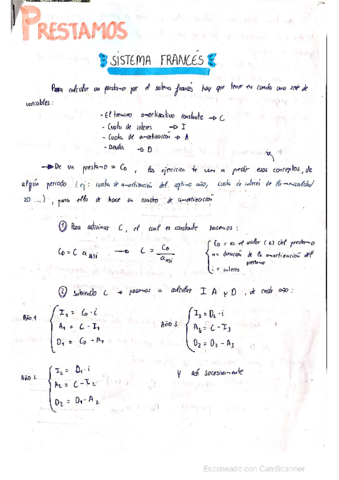 PRESTAMOS
SISTEMA FRANCÉS
Para calcular un prestamo por el sistema francés hay que tener en cuenta una serie de
variables:
- El termino amortizativo constante → C
- Cuota de interes → I
- Cuota de amortización → A
- Deuda → D
→ De un prestamo = C0, los ejercicios te van a pedir esos conceptos, de
algún periodo (ej: cuota de amortización del septimo año, cuota de interés de la mensualidad
20 ...), para ello se hace un cuadro de amortización
① Para adivinar C, el cual es constante hacemos:
C0 = C a n¬i → C = C0 / a n¬i
C0 = es el valor (€) del prestamo
n = duración de la amortización del prestamo
i = interes
② Sabiendo C → pasamos a calcular I A y D, de cada año:
Año 1
I1 = C0 · i
A1 = C - I1
D1 = C0 - A1
Año 3
I3 = D2 · i
A3 = C - I3
D3 = D2 - A3
Año 2
I2 = D1 · i
A2 = C - I2
D2 = D1 - A2
Y así sucesivamente
Escaneado con CamScanner